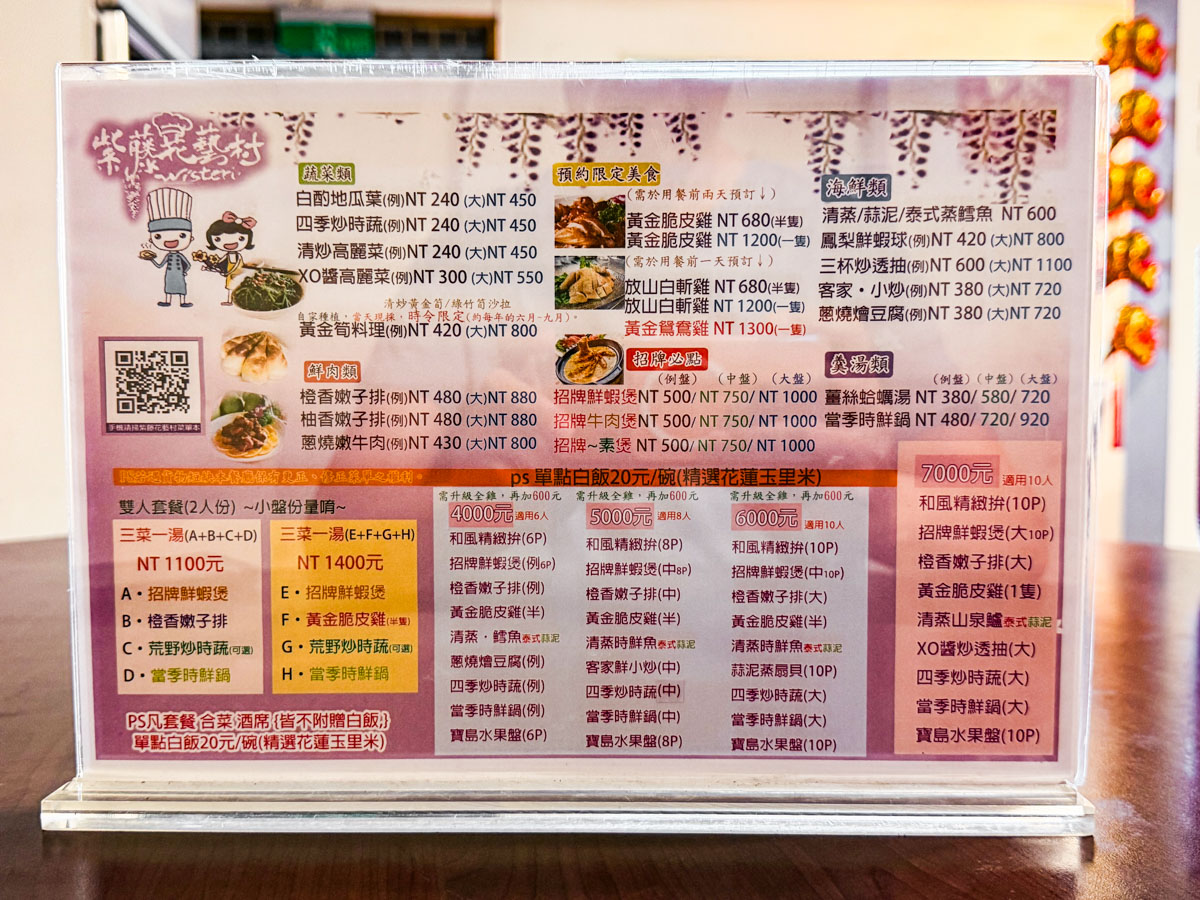 紫藤花藝村
Wisteri.
蔬菜類
白酌地瓜葉(例)NT 240 (大)NT 450
四季炒時蔬(例)NT 240 (大)NT 450
清炒高麗菜(例)NT 240 (大)NT 450
XO醬高麗菜(例)NT 300 (大)NT 550
清炒黃金筍/綠竹筍沙拉
自家種植，當天現採，時令限定(約每年的六月-九月)。
黃金筍料理(例)NT 420 (大)NT 800
鮮肉類
橙香嫩子排(例)NT 480 (大)NT 880
柚香嫩子排(例)NT 480 (大)NT 880
蔥燒嫩牛肉(例)NT 430 (大)NT 800
手機請掃紫藤花藝村菜單本
預約限定美食
(需於用餐前兩天預訂↓)
黃金脆皮雞 NT 680(半隻)
黃金脆皮雞 NT 1200(一隻)
(需於用餐前一天預訂↓)
放山白斬雞 NT 680(半隻)
放山白斬雞 NT 1200(一隻)
黃金鴛鴦雞 NT 1300(一隻)
招牌必點
(例盤) (中盤) (大盤)
招牌鮮蝦煲 NT 500/ NT 750/ NT 1000
招牌牛肉煲 NT 500/ NT 750/ NT 1000
招牌~素煲 NT 500/ NT 750/ NT 1000
海鮮類
清蒸/蒜泥/泰式蒸鱈魚 NT 600
鳳梨鮮蝦球(例)NT 420 (大)NT 800
三杯炒透抽(例)NT 600 (大)NT 1100
客家・小炒(例)NT 380 (大)NT 720
蔥燒燴豆腐(例)NT 380 (大)NT 720
羹湯類
(例盤) (中盤) (大盤)
薑絲蛤蠣湯 NT 380/ 580/ 720
當季時鮮鍋 NT 480/ 720/ 920
ps 單點白飯20元/碗(精選花蓮玉里米)
雙人套餐(2人份) ~小盤份量唷~
三菜一湯(A+B+C+D)
NT 1100元
A・招牌鮮蝦煲
B・橙香嫩子排
C・荒野炒時蔬(可選)
D・當季時鮮鍋
三菜一湯(E+F+G+H)
NT 1400元
E・招牌鮮蝦煲
F・黃金脆皮雞(半隻)
G・荒野炒時蔬(可選)
H・當季時鮮鍋
PS凡套餐 合菜 酒席 {皆不附贈白飯,}
單點白飯20元/碗(精選花蓮玉里米)
需升級全雞，再加600元
4000元 適用6人
和風精緻拚(6P)
招牌鮮蝦煲(例6P)
橙香嫩子排(例)
黃金脆皮雞(半)
清蒸・鱈魚泰式蒜泥
蔥燒燴豆腐(例)
四季炒時蔬(例)
當季時鮮鍋(例)
寶島水果盤(6P)
需升級全雞，再加600元
5000元 適用8人
和風精緻拚(8P)
招牌鮮蝦煲(中8P)
橙香嫩子排(中)
黃金脆皮雞(半)
清蒸時鮮魚泰式蒜泥
客家鮮小炒(中)
四季炒時蔬(中)
當季時鮮鍋(中)
寶島水果盤(8P)
需升級全雞，再加600元
6000元 適用10人
和風精緻拚(10P)
招牌鮮蝦煲(中10P)
橙香嫩子排(大)
黃金脆皮雞(半)
清蒸時鮮魚泰式蒜泥
蒜泥蒸扇貝(10P)
四季炒時蔬(大)
當季時鮮鍋(大)
寶島水果盤(10P)
7000元 適用10人
和風精緻拚(10P)
招牌鮮蝦煲(大10P)
橙香嫩子排(大)
黃金脆皮雞(1隻)
清蒸山泉鱸泰式蒜泥
XO醬炒透抽(大)
四季炒時蔬(大)
當季時鮮鍋(大)
寶島水果盤(10P)